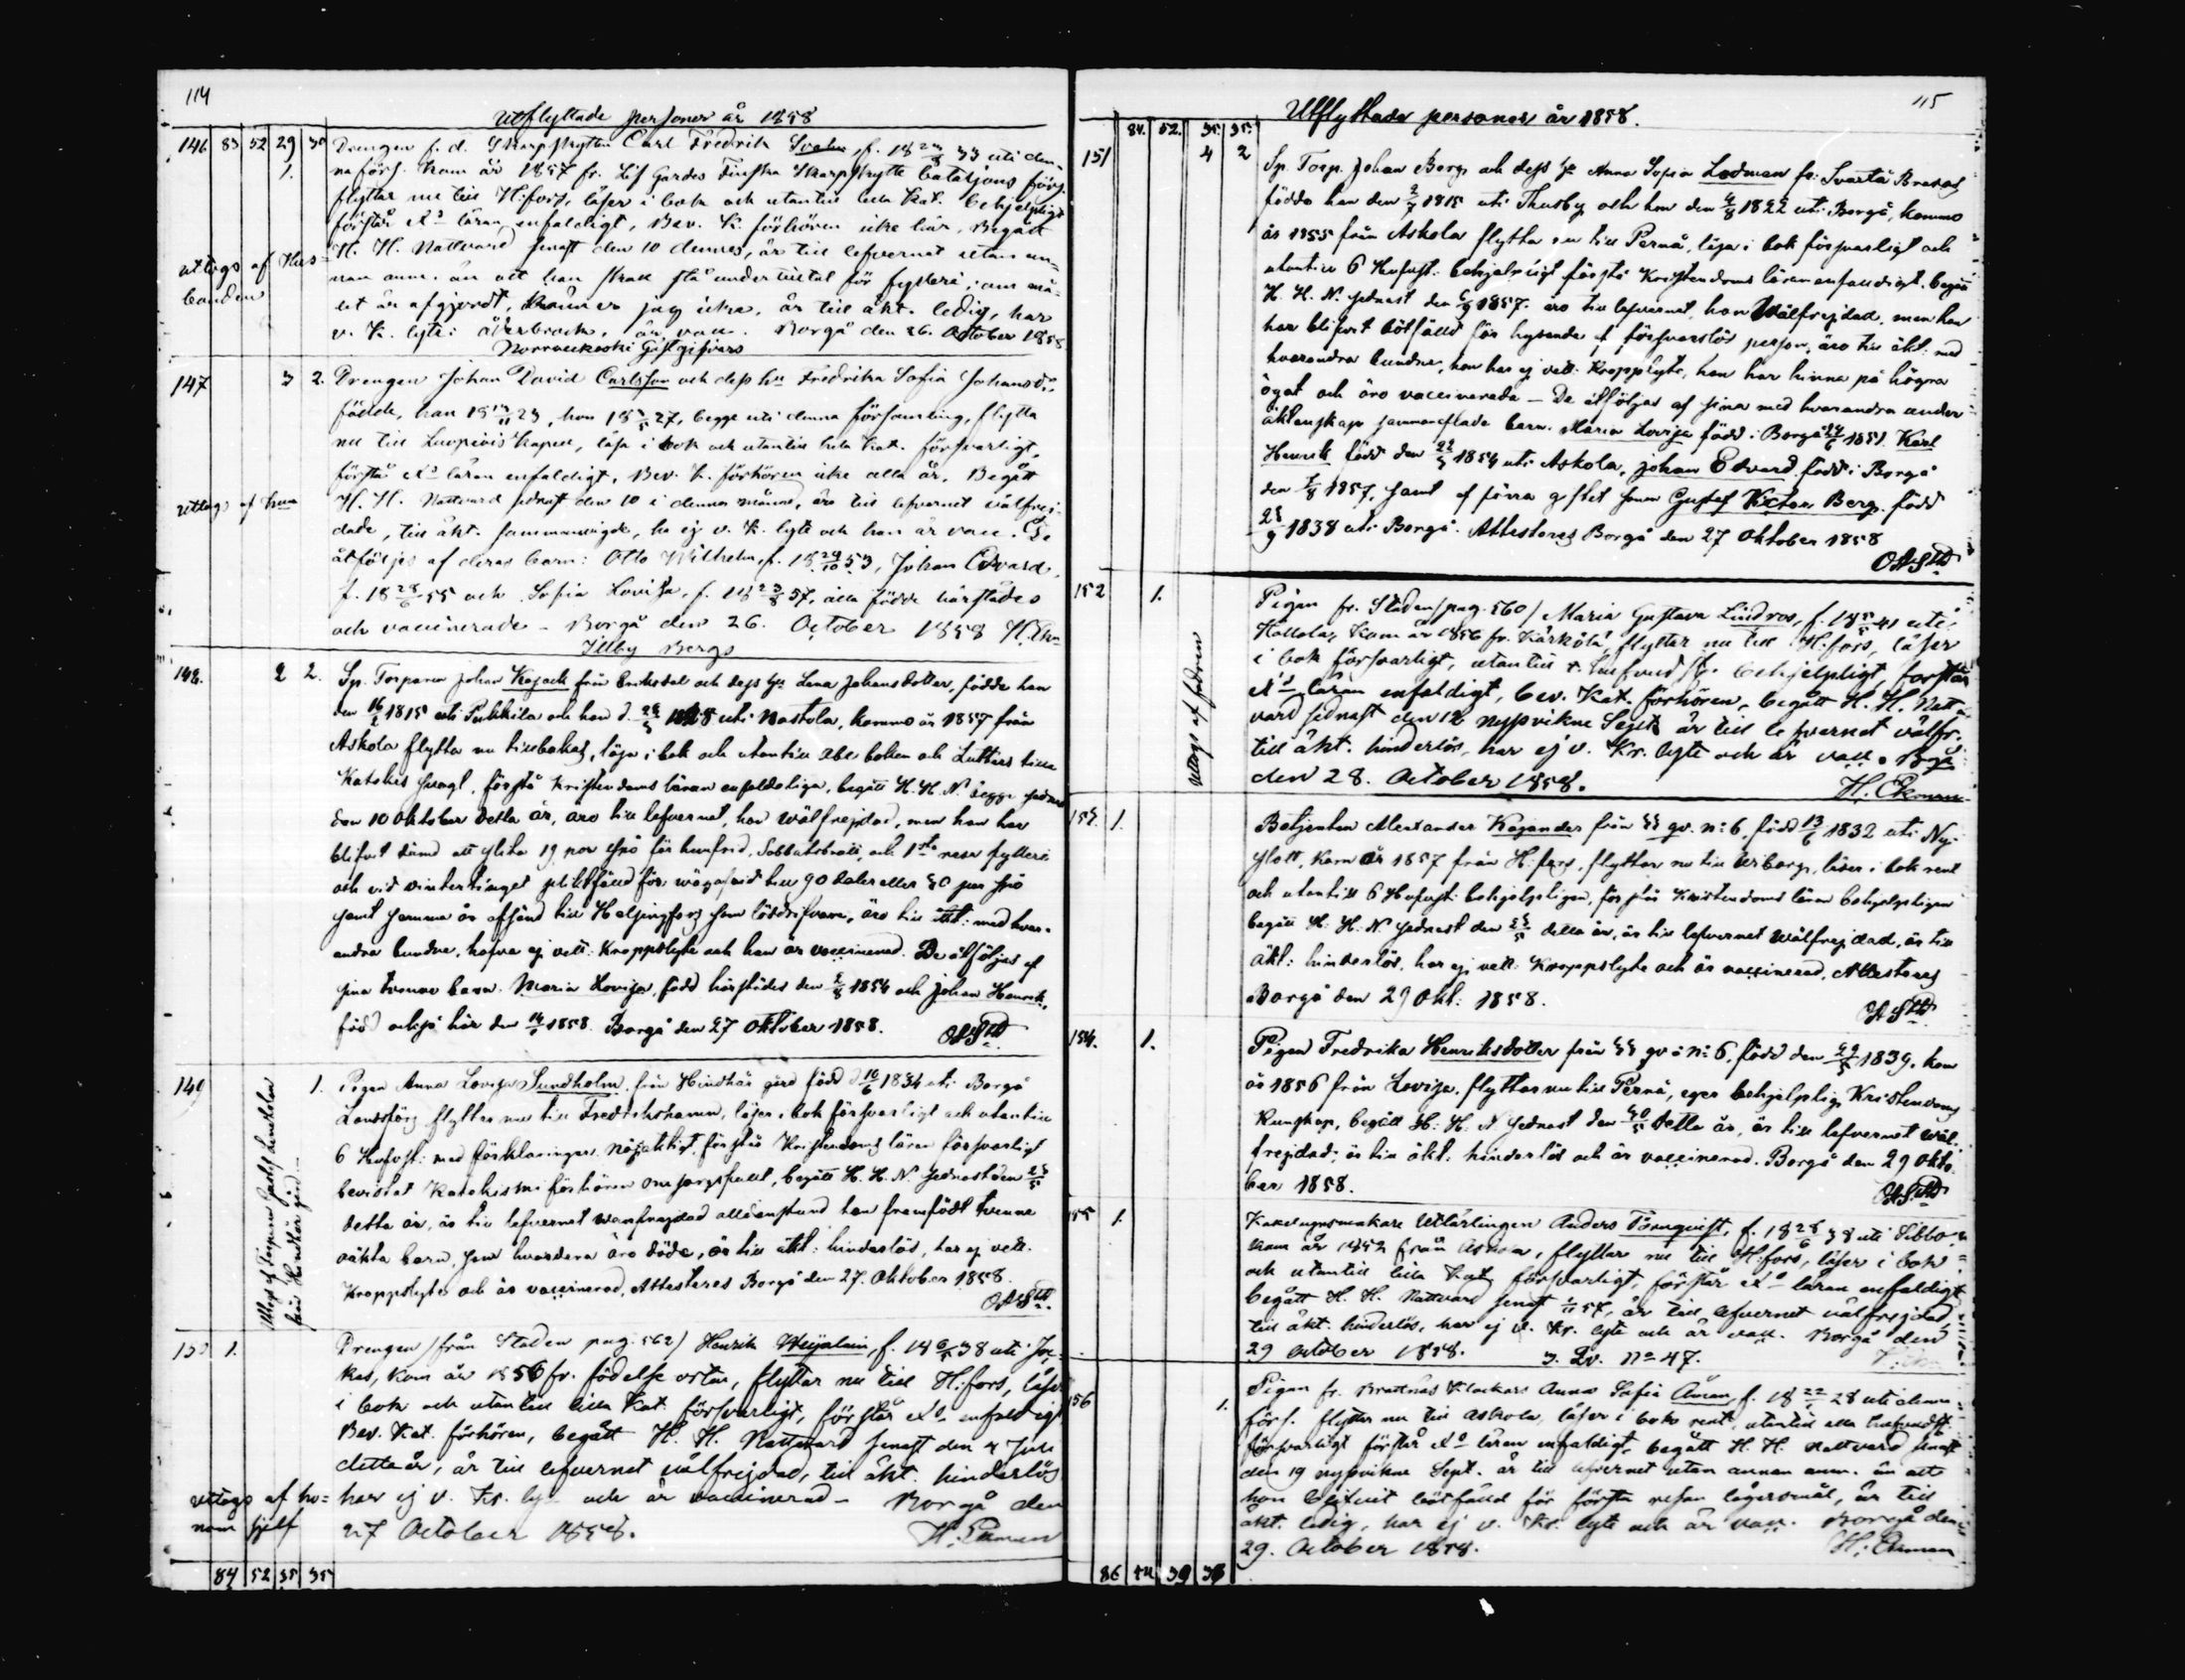 114
Utflyttade personer år 1858
146 83 52 29 35 Drengen f. d. Skarpskytten Carl Fredrik f. 18 33 uti den-
1. na förs. kom år 1857 fr. Lif Gardes Finska Skarpskytte bataljons förs.
flyttar nu till H:fors, läser i bok och utantill lilla Kat. behjelpligt
förstår Xs läran enfaldigt, Bev. K. förhören icke här, Begått
H. H. Nattvard senast den 10 dennes, är till lefvernet utan an-
uttogs af Hus- nan anm. än att han skall stå under tilltal för fylleri, om må-
bonden let är afgjordt, känner jag icke, är till äkt. ledig, har
v. K. lyte: är vacc. Borgå den 26. October 1858
Gästgifvars
147 3 2. Drengen Johan David Carlsson och dess Hu Fredrika Sofia Johansdr,
födde, han 18 23, hon 18 27, begge uti denna församling, flytta
nu till Kapell, läsa i bok och utantill lilla Kat. försvarligt,
förstå Xs läran enfaldigt, Bev. K. förhören icke alla år, Begått
H. H. Nattvard sednast den 10 i denna månad, äro till lefvernet välfrej-
uttogs af
dade, till äkt. sammanvigde, ha ej v. K. lyte och han är vacc. De
åtföljas af deras barn: Otto Wilhelm, f. 18 29/10 53, Johan Edvard,
f. 18 28/6 55 och Sofia Lovisa, f. 18 23/8 57, alla födde härstädes
och vaccinerade – Borgå den 26. October 1858
Illby Bergs
148. 2 2. Sp. Torparen Johan Kajack från Eriksdal och dess Hu Lena Johansdotter, födde han
den 1815 uti Pukkila och hon d. uti Nastola, kommo år 1857 från
Askola flytta nu tillbakas, läsa i bok och utantill abc boken och Luthers lilla
Kateches svagt, förstå Kristendoms läran enfaldeligen, begått H. H. N. begge sednast
den 10 Oktober detta år, äro till lefvernet, hon wälfrejdad, men han har
blifvit dömd att slita 19 par spö för Sabbatsbrott, och 1sta resan fylleri
och vid vintertinget pliktfälld för till 90 daler eller 30 par spö
samt samma år afsänd till Helsingfors som äro till äkt: med hvar-
andra bundne, hafva ej vett. Kroppslyte och han är vaccinerad. De åtföljas af
sina tvenne barn. Maria Lovisa, född härstädes den 1854 och Johan Henrik,
född också här den 1858. Borgå den 27 Oktober 1858.
149 1. Pigan Anna Lovisa Sundholm från Hindhår gård född d 16/6 1834 uti Borgå
Landsförs flyttar nu till Fredrikshamn, läser i bok försvarligt och utantill
6 Hufvst: med förklaringar nöjaktigt, förstår Kristendoms läran försvarligt
bevistat Katechismi förhören omsorgsfullt, begått H. H. N. sednast den
detta år, är till lefvernet wanfrejdad alldenstund hon framfödt tvenne
oäkta barn, som hvardera äro döde, är till äkt: hinderlös, har ej vett.
Kroppslyte och är vaccinerad, Attesteras Borgå den 27. Oktober 1858.
från Hindhår gård
150 1. Drengen /från Staden pag. 562/ Henrik f. 18 38 uti
kas, kom år 1856 fr. födelse orten, flyttar nu till H:fors, läser
i bok och utantill lilla Kat. försvarligt, förstår Xs enfaldigt
Bev. Kat. förhören, begått H. H. Nattvard senast den 4 Juli
detta år, är till lefvernet välfrejdad, till äkt. hinderlös
uttogs af ho- har ej v. Kr. lyte och är vaccinerad – Borgå den
nom sjelf 27 October 1858. H. Ekman
84 52 35 35

115
Utflyttade personer år 1858.
84. 52. 35. 35.
151 4 2 Sp. Torp. Johan Berg och dess Hu Anna Sofia Lodman fr. Svartå
födde han den 1815 uti Thusby och hon den 1822 uti Borgå, kommo
år 1855 från Askola flytta nu till Pernå, läsa i bok försvarligt och
utantill 6 Hufvst: behjelpligt förstå Kristendoms läran enfaldigt, begått
H. H. N. sednast den 1857. äro till lefvernet, hon Wälfrejdad, men han
har blifvit bötfälld för hysande af försvarslös person, äro till äkt: med
hvarandra bundne, hon har ej vett. Kroppslyte, han har hinna på högra
ögat och äro vaccinerade – De åtföljas af sina med hvarandra under
äktenskap sammanaflade barn. Maria Lovisa född i Borgå 1851. Karl
Henrik född den 22/3 1854 uti Askola, Johan Edvard född i Borgå
den 1857, samt af förra giftet sonen Gustaf Victor Berg, född
1838 uti Borgå. Attesteras Borgå den 27 Oktober 1858
152 1. Pigan fr. Staden /pag. 560/ Maria Gustava Lindros, f. 18 41 uti
Hollola, kom år 1856 fr. Kärkölä, flyttar nu till H:fors, läser
i bok försvarligt, utantill behjelpligt, förstår
Xs läran enfaldigt, bev. Kat. förhören, begått H. H. Natt-
uttogs af fadren
vard sednast den 12 nyssvikne Sept. är till lefvernet välfr.
till äkt. hinderlös, har ej v. Kr. lyte och är vacc. Borgå
den 28. October 1858. H. Ekman
153. 1. Betjenten Alexander Kajander från gv. № 6, född 13/6 1832 uti Ny-
slott, kom år 1857 från H:fors, flyttar nu till Wiborg, läser i bok rent
och utantill 6 Hufvst: behjelpligen, förstår Kristendoms läran behjelpligen
begått H. H. N. sednast den detta år, är till lefvernet Wälfrejdad, är till
äkt: hinderlös, har ej vett. Kroppslyte och är vaccinerad, Attesteras
Borgå den 29 Okt: 1858.
154. 1. Pigan Fredrika Henriksdotter från gv № 6, född den 1839, kom
år 1856 från Lovisa, flyttar nu till Pernå, eger behjelplig Kristendoms
Kunskap, begått H: H: N sednast den detta år, är till lefvernet Wäl-
frejdad; är till äkt. hinderlös och är vaccinerad. Borgå den 29 Okto-
ber 1858.
155 1. Kakelugnsmakare Utlärlingen Anders Törnqvist, f. 18 28/6 38 uti Sibbo
kom år 1852 från Askola, flyttar nu till H:fors, läser i bok
och utantill lilla Kat. försvarligt, förstår Xs läran enfaldigt
begått H. H. Nattvard senast 57, är till lefvernet välfrejdad,
till äkt. hinderlös, har ej v. Kr. lyte och är vacc. Borgå den
29 October 1858. 3. Qv. No 47.
156 1. Pigan fr. Klockars Anna Sofia Åman, f. 18 22 28 uti denna
förs. flyttar nu till Askola, läser i bok rent, utantill
försvarligt förstår Xs läran enfaldigt, begått H. H. Nattvard senast
den 19 nyssvikne Sept. är till lefvernet utan annan anm. än att
hon blifvit bötfälld för första resan lägersmål, är till
äkt. ledig, har ej v. Kr. lyte och är vacc. Borgå den
29. October 1858. H. Ekman
86 54 39 38